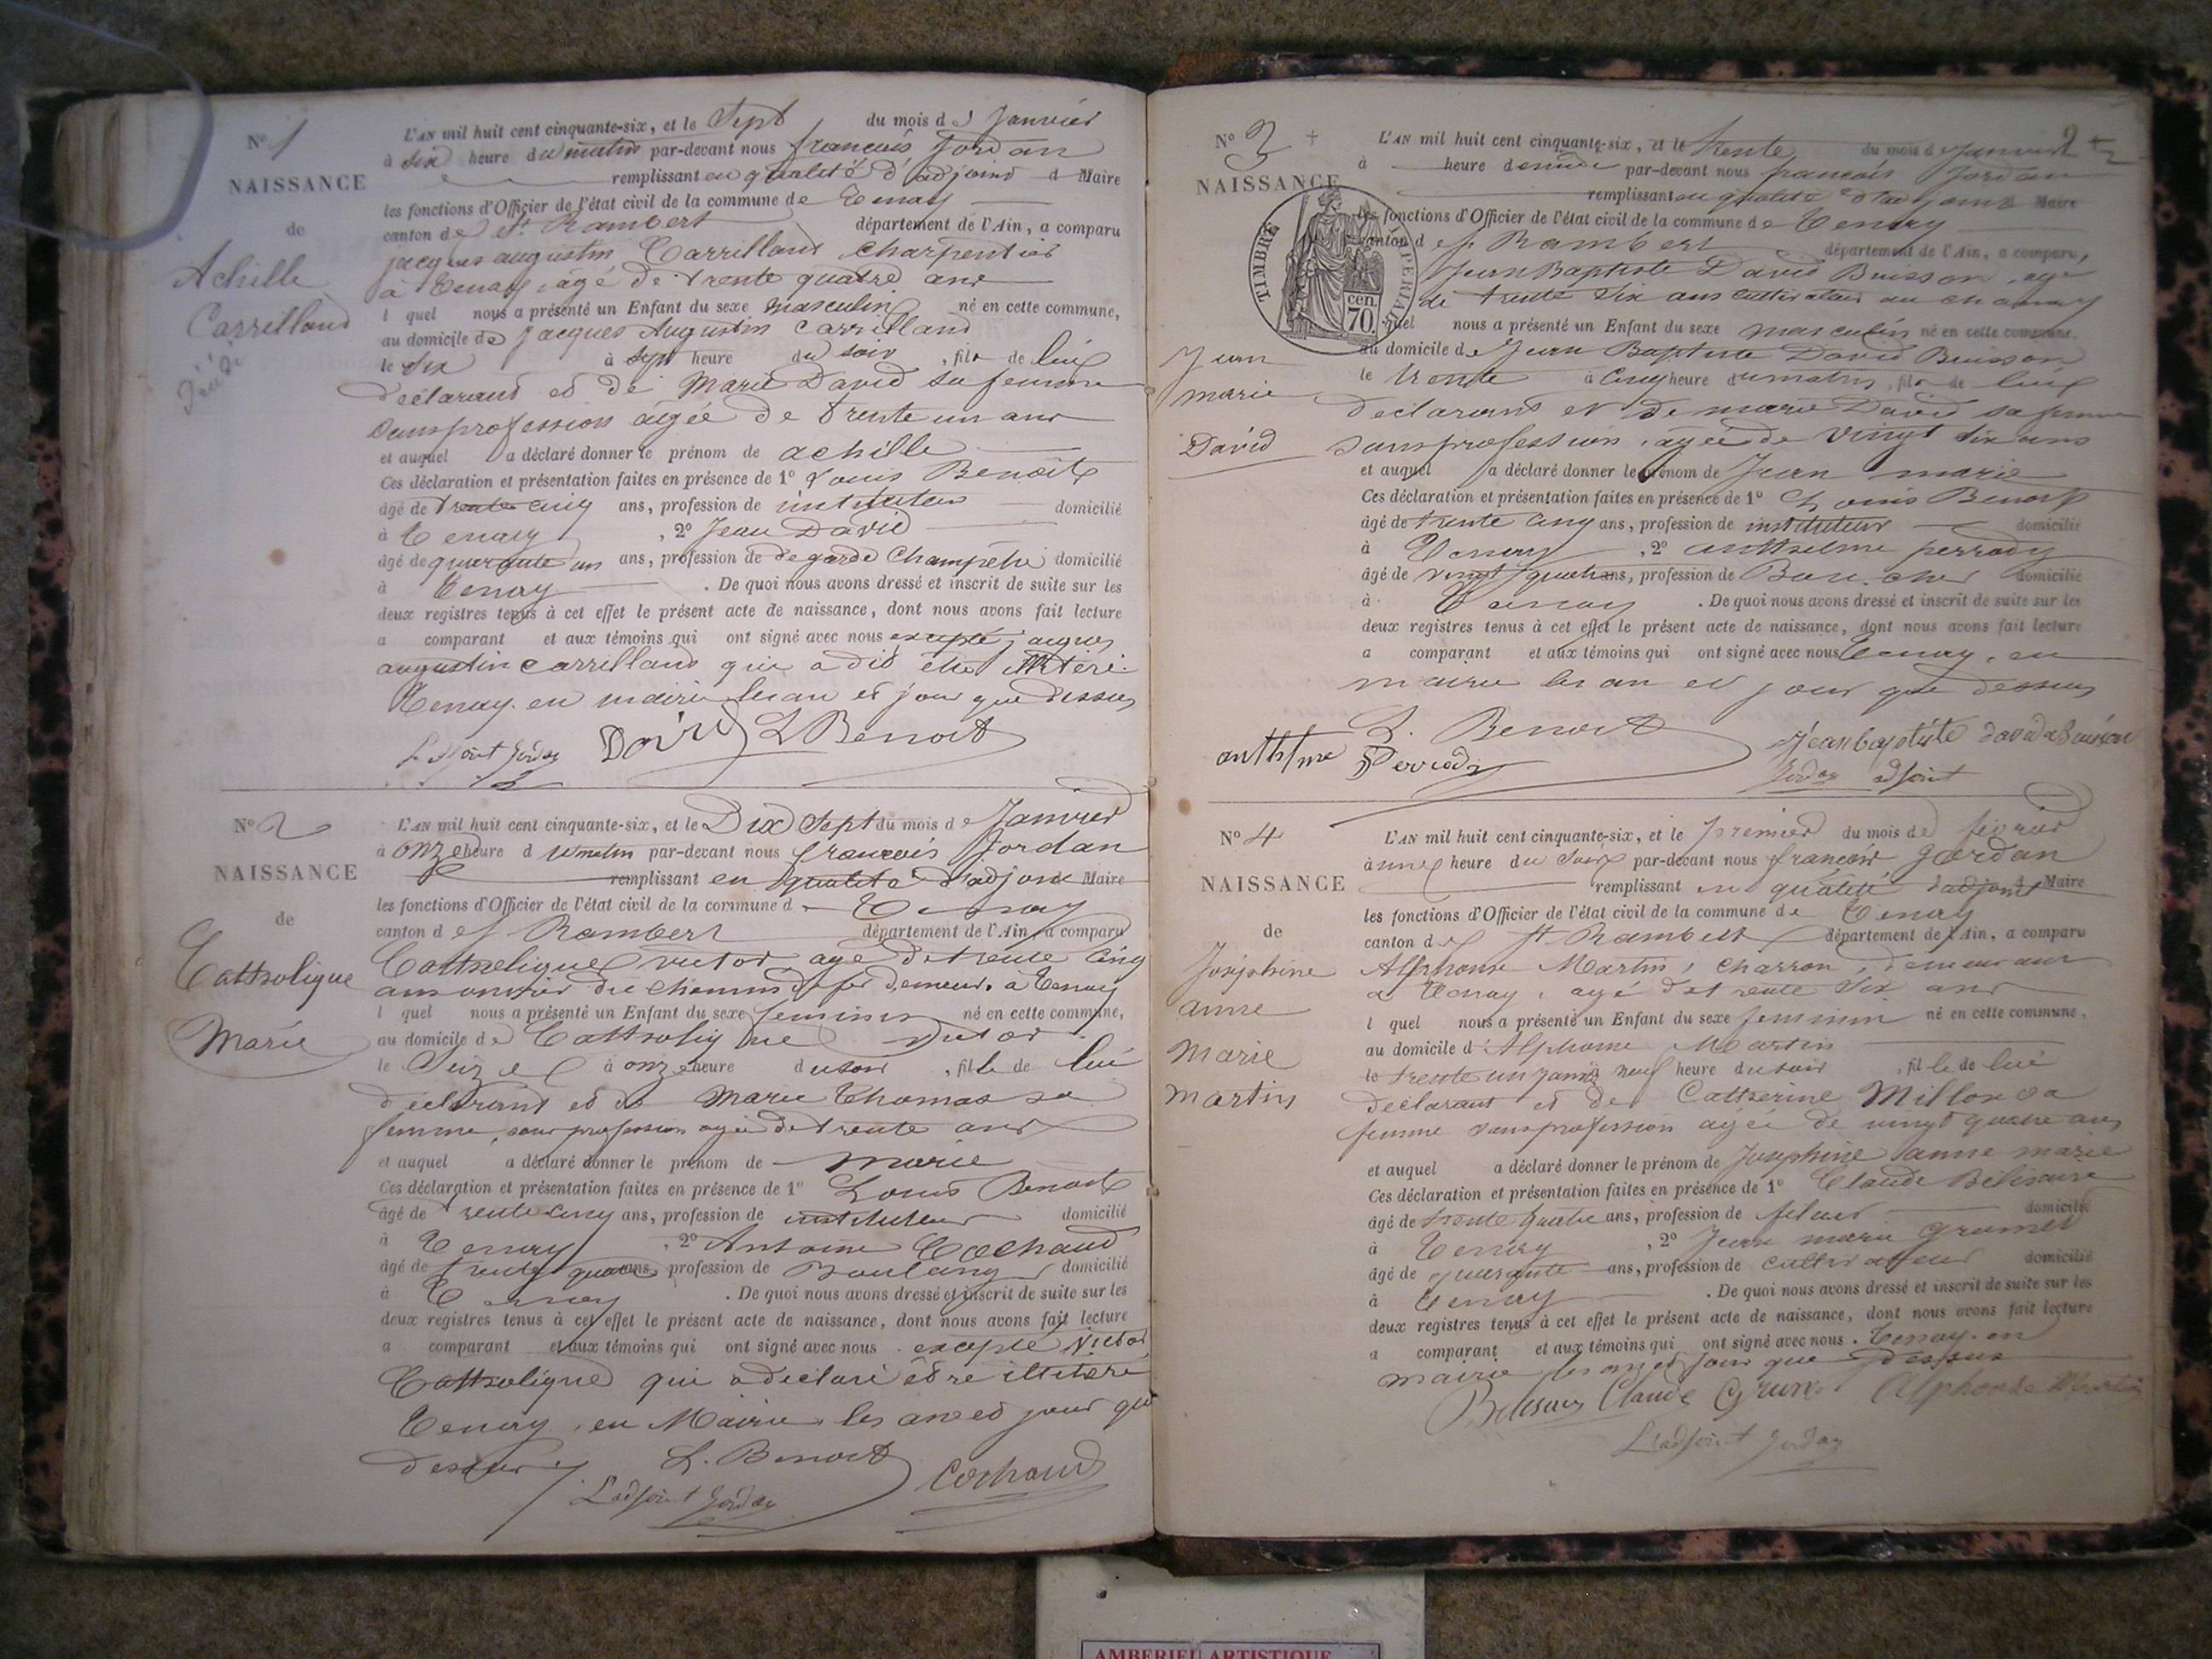 N° 1
NAISSANCE
de
Achille
Carrilland
L'AN mil huit cent cinquante-six, et le Sept du mois de Janvier
à dix heure du matin par-devant nous françois Jordan
remplissant en qualité d'adjoint d Maire
les fonctions d'Officier de l'état civil de la commune de Tenay
canton de St Rambert département de l'Ain, a comparu
jacques augustin Carrilland charpentier
à Tenay, âgé de trente quatre ans
l quel nous a présenté un Enfant du sexe masculin né en cette commune,
au domicile de Jacques Augustin Carrilland
le six à sept heure du soir, fils de lui
déclarant et de Marie David sa femme
sans profession âgée de trente un ans
et auquel a déclaré donner le prénom de achille
Ces déclaration et présentation faites en présence de 1° Louis Benoit
âgé de trente cinq ans, profession de instituteur domicilié
à Tenay, 2° Jean David
âgé de quarante un ans, profession de de garde Champêtre domicilié
à Tenay. De quoi nous avons dressé et inscrit de suite sur les
deux registres tenus à cet effet le présent acte de naissance, dont nous avons fait lecture
a comparant et aux témoins qui ont signé avec nous excepté jacques
augustin carrilland qui a dit être illitéré
Tenay en mairie les an et jour que dessus
L'adjoint Jordan David L Benoit
N° 2
NAISSANCE
de
Catholique
Marie
L'AN mil huit cent cinquante-six, et le Dix Sept du mois de Janvier
à onze heure d u matin par-devant nous françois Jordan
remplissant en qualité d'adjoint Maire
les fonctions d'Officier de l'état civil de la commune d Tenay
canton de St Rambert département de l'Ain, a comparu
Catholique victor agé de trente cinq
ans ouvrier du chemin de fer demeur. à Tenay
l quel nous a présenté un Enfant du sexe feminin né en cette commune,
au domicile de Catholique Victor
le Seize à onze heure du soir, fille de lui
déclarant et de Marie Thomas sa
femme, sans profession agée de trente ans
et auquel a déclaré donner le prénom de marie
Ces déclaration et présentation faites en présence de 1° Louis Benoit
âgé de trente cinq ans, profession de instituteur domicilié
à Tenay, 2° Antoine Cochaud
âgé de trente quatre ans, profession de Boulanger domicilié
à Tenay. De quoi nous avons dressé et inscrit de suite sur les
deux registres tenus à cet effet le présent acte de naissance, dont nous avons fait lecture
a comparant et aux témoins qui ont signé avec nous excepté Victor
Catholique qui a déclaré être illitéré
Tenay, en Mairie les an et jour que
dessus L. Benoit Cochaud
L'adjoint Jordan
2
N° 3
NAISSANCE
TIMBRE IMPERIAL
cen.
70.
Jean
marie
David
L'AN mil huit cent cinquante-six, et le trente du mois de Janvier
à heure de midi par-devant nous francois Jordan
remplissant en qualité d'adjoint Maire
les fonctions d'Officier de l'état civil de la commune de Tenay
canton d e St Rambert département de l'Ain, a comparu,
Jean Baptiste David Buisson, agé
de trente six ans cultivateur au chanay
l quel nous a présenté un Enfant du sexe masculin né en cette commune.
au domicile de Jean Baptiste David Buisson
le trente à cinq heure du matin, fils de lui
déclarant et de marie David sa femme
sans profession, agée de vingt six ans
et auquel a déclaré donner le prénom de Jean marie
Ces déclaration et présentation faites en présence de 1° Louis Benoit
âgé de trente cinq ans, profession de instituteur domicilié
à Tenay, 2° anthelme perrody
âgé de vingt quatre ans, profession de Boucher domicilié
à Tenay. De quoi nous avons dressé et inscrit de suite sur les
deux registres tenus à cet effet le présent acte de naissance, dont nous avons fait lecture
a comparant et aux témoins qui ont signé avec nous Tenay, en
mairie les an et jour que dessus
L. Benoit Jean baptiste david Buisson
Perrody Jordan adjoint
N° 4
NAISSANCE
de
Joséphine
anne
Marie
Martin
L'AN mil huit cent cinquante-six, et le premier du mois de février
à une heure du soir par-devant nous françois Jordan
remplissant en qualité d'adjoint Maire
les fonctions d'Officier de l'état civil de la commune de Tenay
canton de St Rambert département de l'Ain, a comparu
Alphonse Martin, charron, demeurant
a Tenay, agé de trente six ans
l quel nous a présenté un Enfant du sexe feminin né en cette commune,
au domicile d'Alphonse Martin
le trente un janv. à neuf heure du soir, fille de lui
déclarant et de Catherine Millon sa
femme sans profession agée de vingt quatre ans
et auquel a déclaré donner le prénom de Josephine anne marie
Ces déclaration et présentation faites en présence de 1° Claude Bélisaire
âgé de trente quatre ans, profession de fileur domicilié
à Tenay, 2° Jean marie Grumet
âgé de quarante ans, profession de cultivateur domicilié
à Tenay. De quoi nous avons dressé et inscrit de suite sur les
deux registres tenus à cet effet le présent acte de naissance, dont nous avons fait lecture
a comparant et aux témoins qui ont signé avec nous. Tenay. en
mairie les an et jour que dessus
Claude Alphonse Martin
L'adjoint Jordan
AMBERIEU ARTISTIQUE